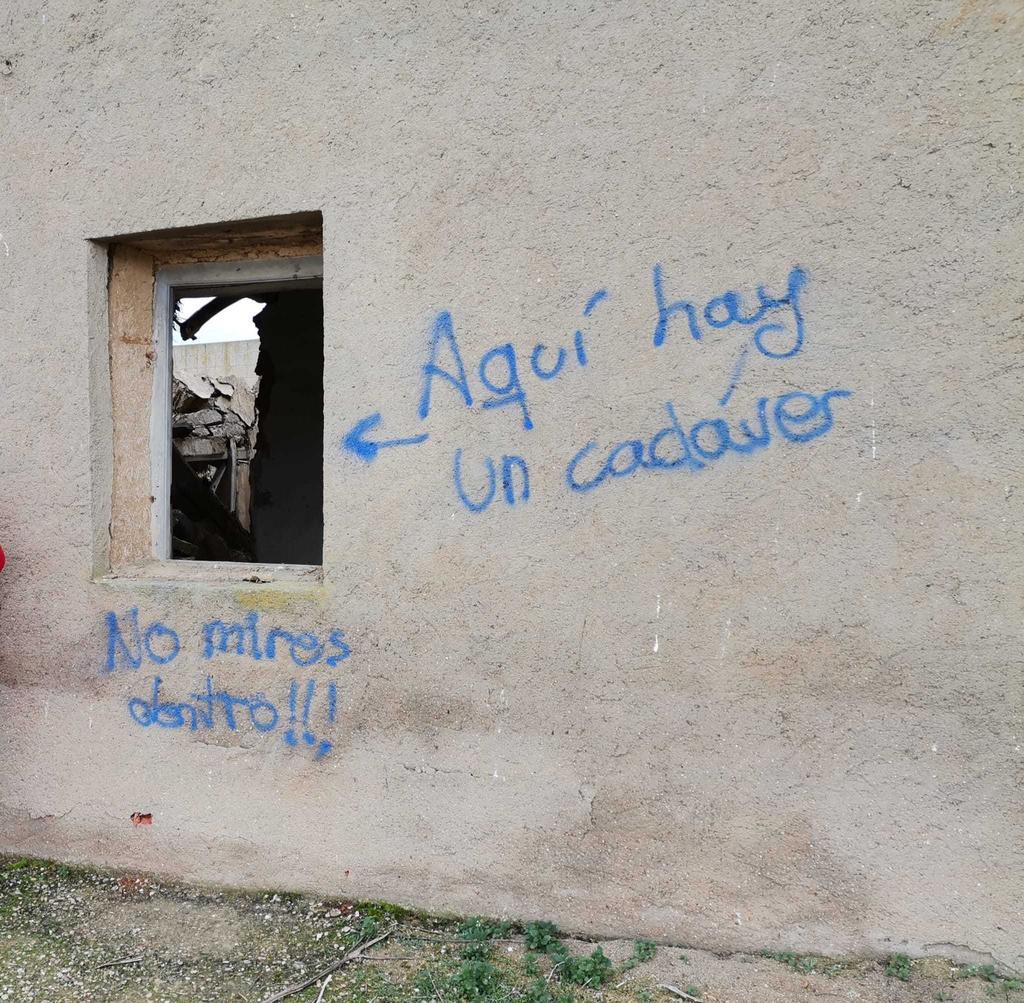 Aquí hay
un cadáver
No mires
dentro!!!